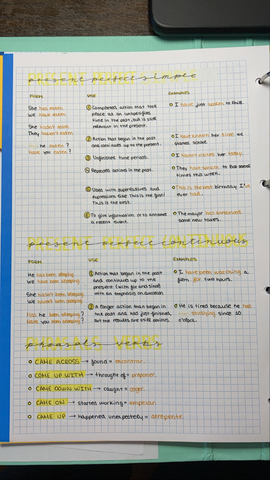 PRESENT PERFECT SIMPLE
present perfect simple
FORM USE EXAMPLES
She has eaten.
We have eaten.
She hasn't eaten
They haven't eaten
he eaten?
Have you eaten?
① Completed action that took
place at an unspecified
time in the past, but is still
relevant in the present.
I have just spoken to Phill.
② Action that began in the past
and continues up to the present.
I have known her since we
started
③ Unfinished time periods.
I haven't today.
④ Repeated actions in the past.
They have to
times this week.
⑤ Used with superlatives and
expressions like This is the first/
This is the best.
This is the best birthday I've
ever had.
⑥ To give information or to announce
a recent event.
The mayor has announced
some new taxes.
PRESENT PERFECT CONTINUOUS
present perfect continuous
FORM USE EXAMPLES
He has been sleeping
We have been sleeping
She hasn't been sleeping
We haven't been sleeping
Has he been sleeping?
Have you been sleeping?
① Action that began in the past
and continues up to the
present (with for and since)
with an emphasis on duration
I have been watching a
film for two hours.
② A longer action that began in
the past and has just finished,
but the results are still obvious.
He is tired because he has
studying since 10
o'clock.
PHRASAL VERBS
phrasals verbs
CAME ACROSS → found =
COME UP WITH → thought of =
CAME DOWN WITH → caught = coger.
CAME ON → started working =
CAME UP → happened unexpectedly =